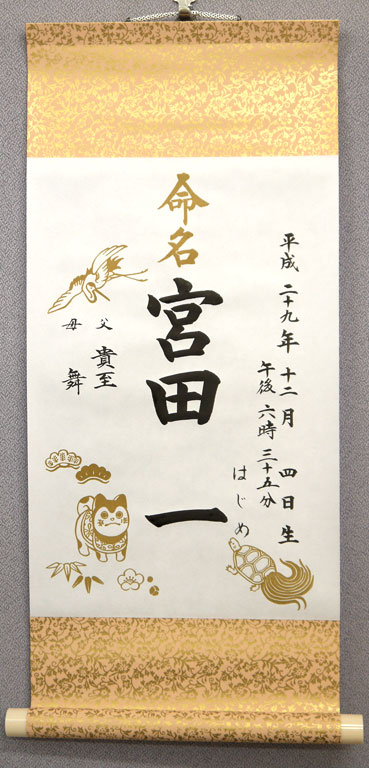 平成二十九年十二月四日生
午後六時三十五分
命名
宮田一
はじめ
父 貴至
母 舞